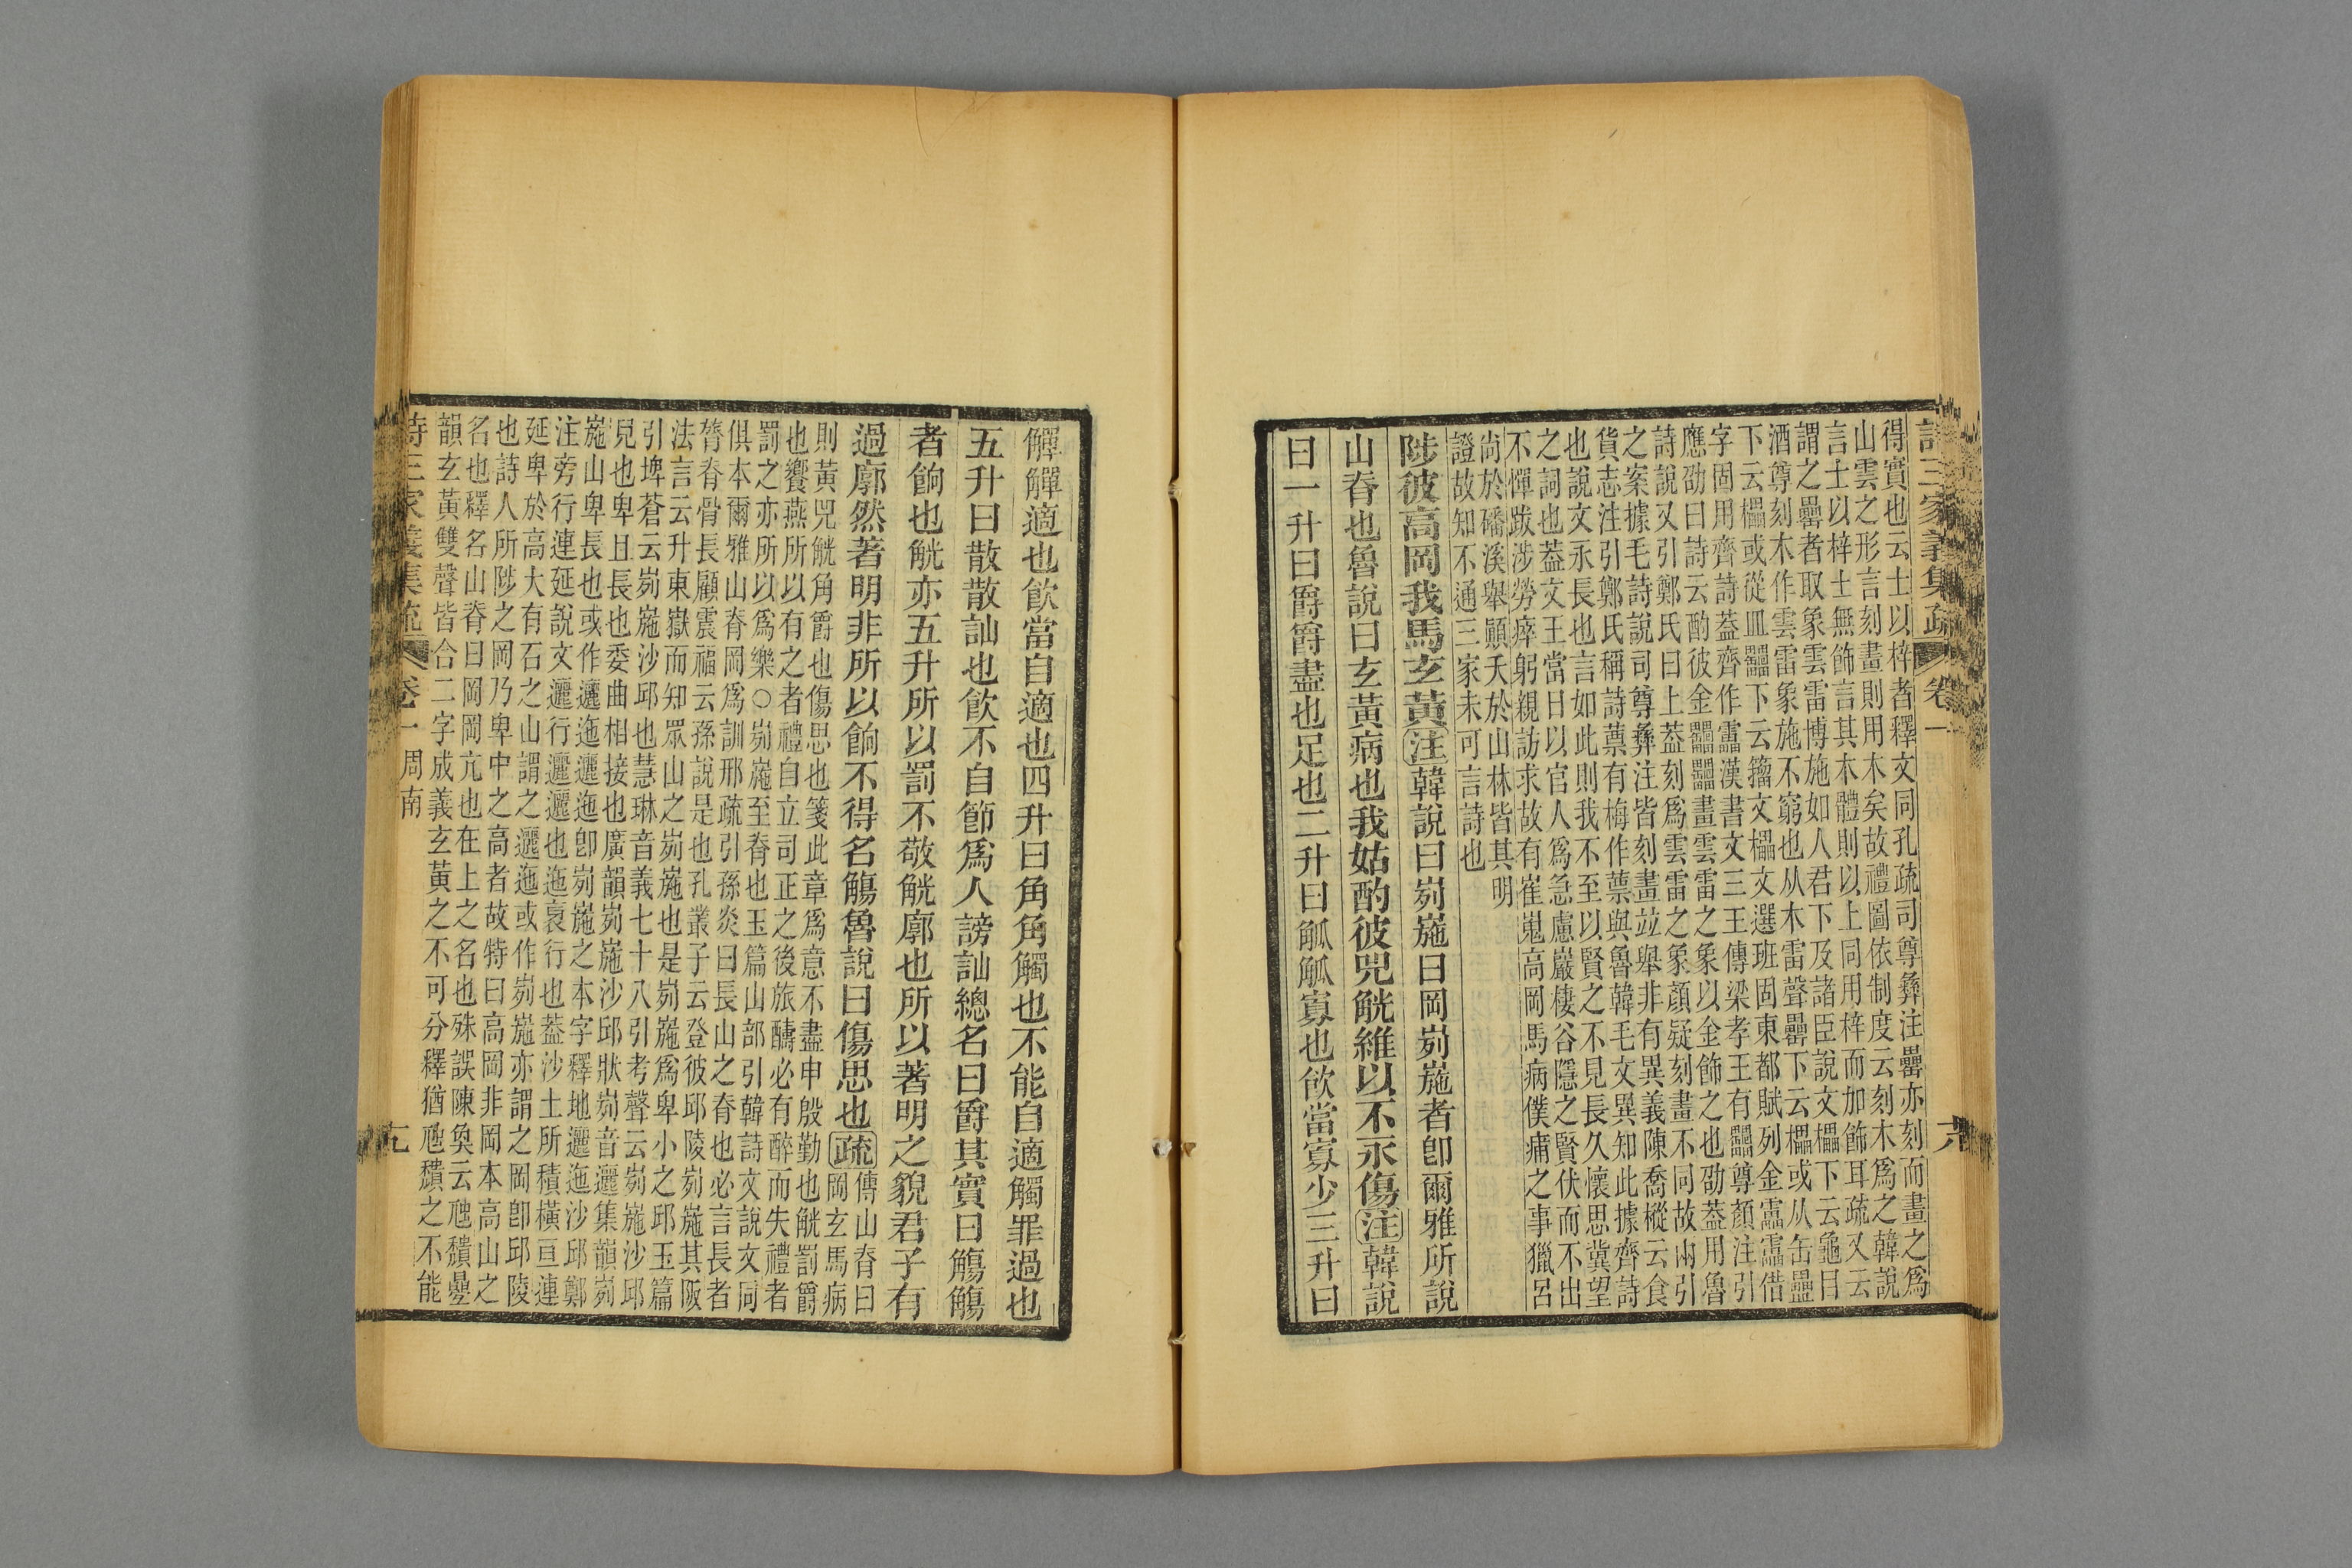 詩三家義集疏 卷一
得實也云士以梓者釋文同孔疏司尊彝注罍亦刻而畫之爲
山雲之形言刻畫則用木矣故禮圖依制度云刻木爲之韓說
言士以梓士無飾言其木體則以上同用梓而加飾耳疏又云
謂之罍者取象雲雷博施如人君下及諸臣說文櫑下云龜目
酒尊刻木作雲雷象施不窮也从木雷聲罍下云櫑或从缶
下云櫑或從皿下云籀文櫑文選班固東都賦列金罍借
字固用齊詩蓋齊作漢書文三王傳梁孝王有尊顏注引
應劭曰詩云酌彼金畫雲雷之象以金飾之也劭蓋用魯
詩說又引鄭氏曰上蓋刻爲雲雷之象顏疑刻畫不同故兩引
之案據毛詩說司尊彝注皆刻畫竝舉非有異義陳喬樅云食
貨志注引鄭氏稱詩蔈有梅作蔈與魯韓毛文異知此據齊詩
也說文永長也言如此則我不至以賢之不見長久懷思冀望
之詞也蓋文王當日以官人爲急慮巖棲谷隱之賢伏而不出
不憚跋涉勞瘁躬親訪求故有崔嵬高岡馬病僕痡之事獵呂
尚於磻溪舉顚夭於山林皆其明
證故知不通三家未可言詩也
陟彼高岡我馬玄黃注韓說曰峛崺曰岡峛崺者卽爾雅所說
山脊也魯說曰玄黃病也我姑酌彼兕觥維以不永傷注韓說
曰一升曰爵爵盡也足也二升曰觚觚寡也飲當寡少三升曰
觶觶適也飲當自適也四升曰角角觸也不能自適觸罪過也
五升曰散散訕也飲不自節爲人謗訕總名曰爵其實曰觴觴
者餉也觥亦五升所以罰不敬觥廓也所以著明之貌君子有
過廓然著明非所以餉不得名觴魯說曰傷思也疏傳山脊曰
岡玄馬病
則黃兕觥角爵也傷思也箋此章爲意不盡申殷勤也觥罰爵
也饗燕所以有之者禮自立司正之後旅醻必有醉而失禮者
罰之亦所以爲樂○峛崺至脊也玉篇山部引韓詩文說文同
俱本爾雅山脊岡爲訓邢疏引孫炎曰長山之脊也必言長者
膂脊骨長顧震福云孫說是也孔叢子云登彼邱陵峛崺其阪
法言云升東嶽而知眾山之峛崺也是峛崺爲卑小之邱玉篇
引埤蒼云峛崺沙邱也慧琳音義七十八引考聲云峛崺沙邱
皃也卑且長也委曲相接也廣韻峛崺沙邱狀峛音邐集韻峛
崺山卑長也或作邐迤邐迤卽峛崺之本字釋地邐迤沙邱鄭
注旁行連延說文邐行邐邐也迤衺行也蓋沙土所積橫亘連
延卑於高大有石之山謂之邐迤或作峛崺亦謂之岡卽邱陵
也詩人所陟之岡乃卑中之高者故特曰高岡非岡本高山之
名也釋名山脊曰岡岡亢也在上之名也殊誤陳奐云虺隤疊
韻玄黃雙聲皆合二字成義玄黃之不可分釋猶虺隤之不能
詩三家義集疏 卷一 周南